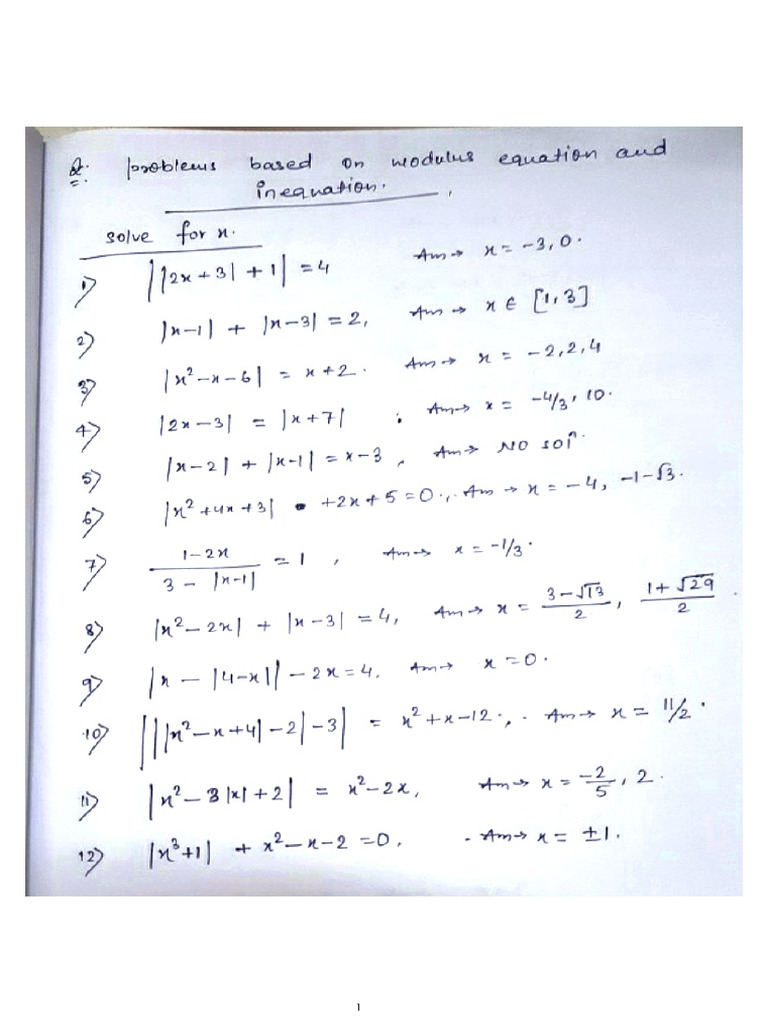 Q. problems based on modulus equation and
inequation.
solve for x.
1) ||2x+3| + 1| = 4 Ans→ x = -3, 0.
2) |x-1| + |x-3| = 2, Ans → x ∈ [1, 3]
3) |x²-x-6| = x+2. Ans→ x = -2, 2, 4
4) |2x-3| = |x+7| ; Ans→ x = -4/3, 10.
5) |x-2| + |x-1| = x-3, Ans→ No solⁿ.
6) |x²+4x+3| +2x+5=0, Ans → x = -4, -1-√3.
7) (1-2x)/(3 - |x-1|) = 1, Ans→ x = -1/3.
8) |x²-2x| + |x-3| = 4, Ans→ x = (3-√13)/2, (1+√29)/2.
9) |x - |4-x|| - 2x = 4, Ans→ x = 0.
10) |||x²-x+4| - 2| - 3| = x²+x-12, Ans→ x = 11/2.
11) |x²-3|x|+2| = x²-2x, Ans→ x = -2/5, 2.
12) |x³+1| + x²-x-2 = 0, Ans→ x = ±1.
1